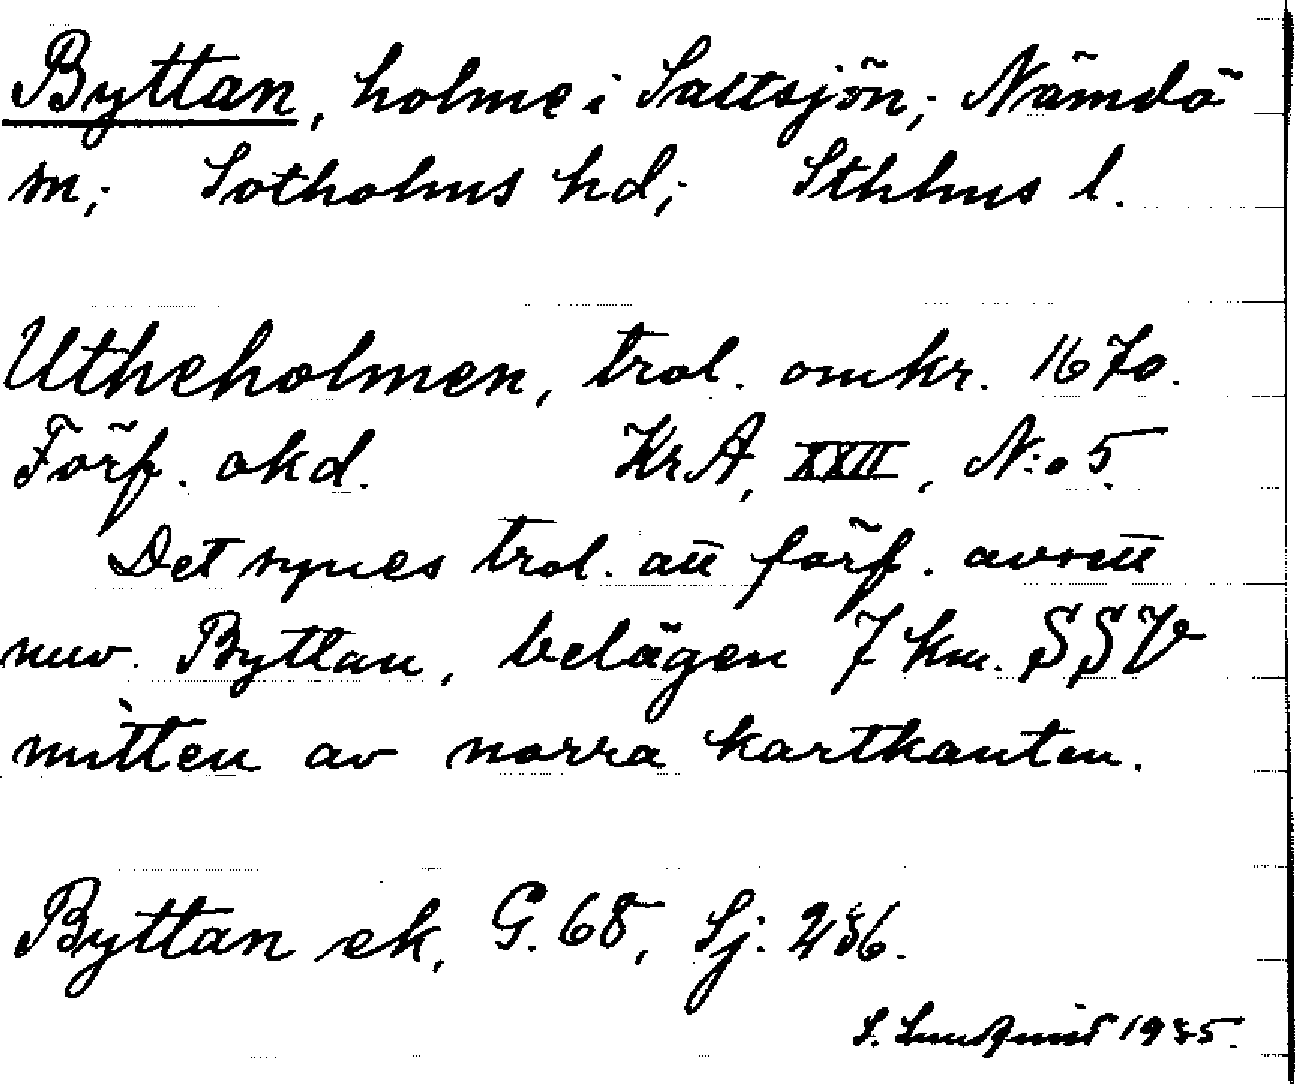 Byttan, holme i Saltsjön; Nämdö
sn; Sotholms hd; Sthlms l.
Utheholmen, trol. omkr. 1670.
Förf. okd. KrA, XXII, N:o 5.
Det synes trol. att förf. avsett
nuv. Byttan, belägen 7 km. SSV
mitten av norra kartkanten.
Byttan ek, G. 68, Sj: 236.
S. Lundqvist 1935.